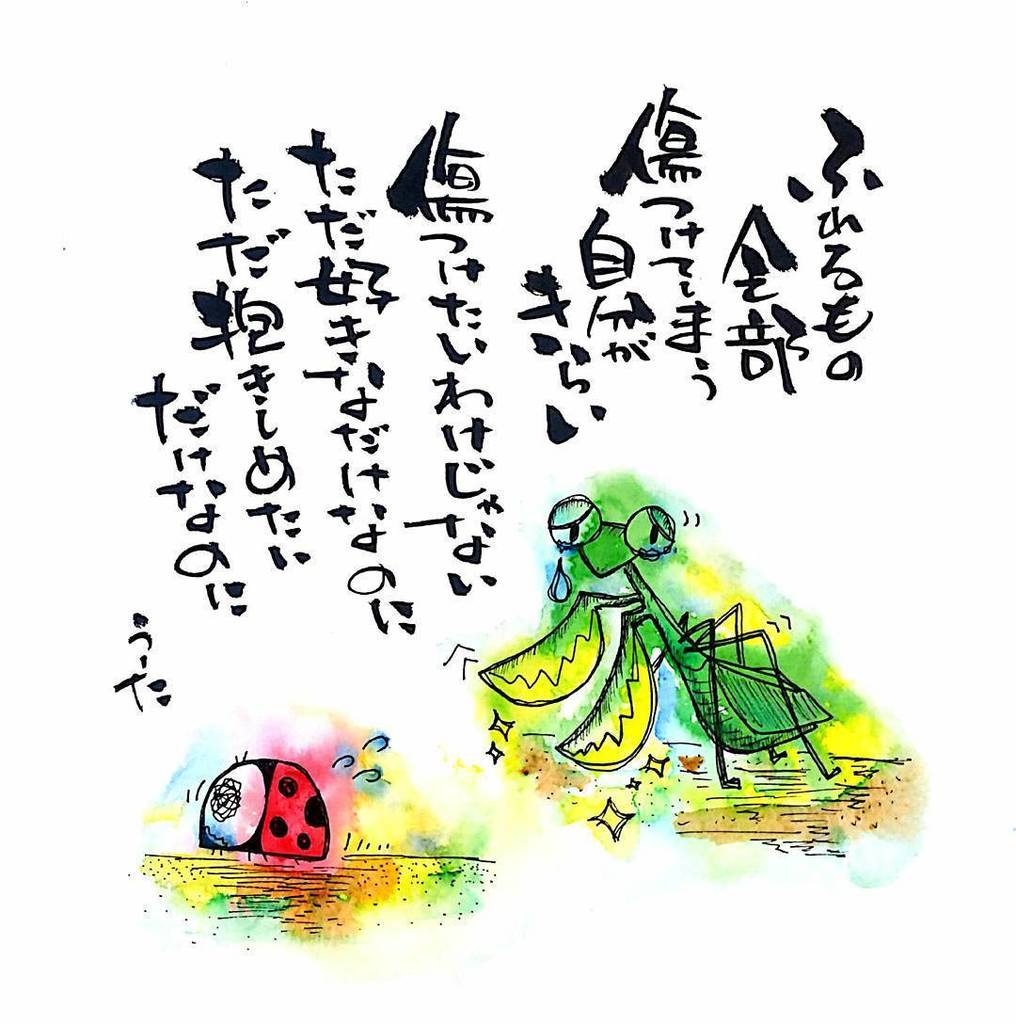 ふれるもの
全部
傷つけてしまう
自分が
きらい
傷つけたいわけじゃない
ただ好きなだけなのに
ただ抱きしめたい
だけなのに
うーた